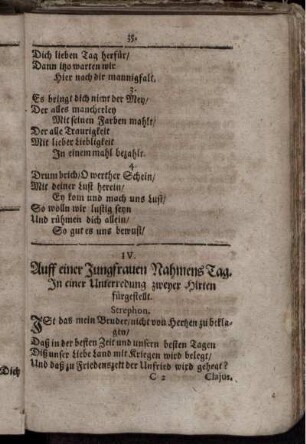 35.
Dich lieben Tag herfür/
Dann itzo warten wir
Hier nach dir mannigfalt.
3.
Es bringt dich nimt der Mey/
Der alles mancherley
Mit seinen Farben mahlt/
Der alle Traurigkeit
Mit lieber Liebligkeit
In einem mahl bezahlt.
4.
Drum brich/ O werther Schein/
Mit deiner Lust herein/
Ey kom und mach uns Lust/
So wolln wir lustig seyn
Und rühmen dich allein/
So gut es uns bewust/
IV.
Auff einer Jungfrauen Nahmens Tag.
In einer Unterredung zweyer Hirten
fürgestellt.
Strephon.
ISt das mein Bruder/ nicht von Hertzen zu bekla-
gen/
Daß in der besten Zeit und unsern besten Tagen
Diß unser Liebe Land mit Kriegen wird belegt/
Und daß zu Friedenszeit der Unfried wird geheat?
C 2 Clajus.
Dich